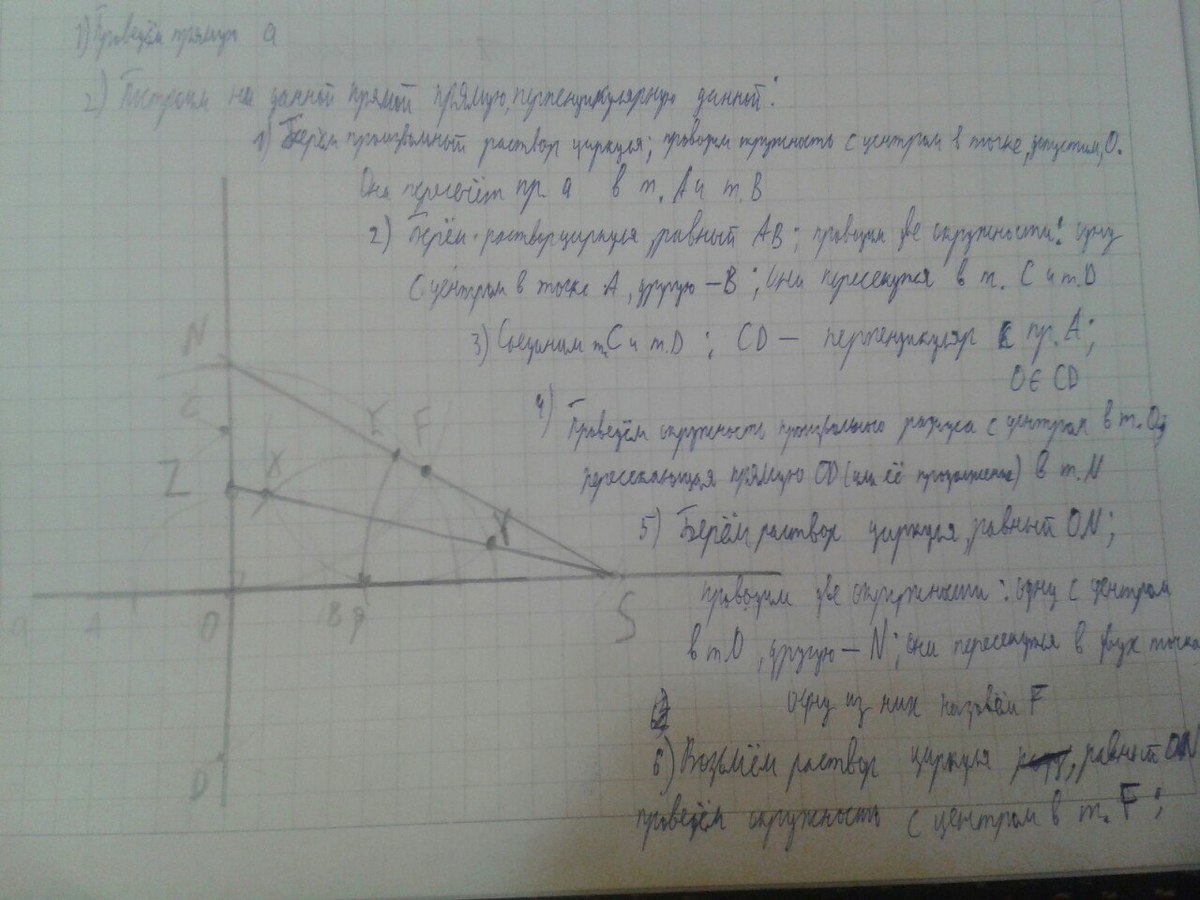 1) Проведём прямую a
2) Построим на данной прямой прямую, перпендикулярную данной:
1) Берём произвольный раствор циркуля; проводим окружность с центром в точке, допустим, O.
Она пересечёт пр. a в т. A и т. B
2) Берём раствор циркуля, равный AB; проводим две окружности: одну
с центром в точке A, другую – B; они пересекутся в т. C и т. D
3) Соединим т. C и т. D; CD – перпендикуляр к пр. A;
O ∈ CD
4) Проведём окружность произвольного радиуса с центром в т. O,
пересекающая прямую CD (или её продолжение) в т. N
5) Берём раствор циркуля, равный ON;
проводим две окружности: одну с центром
в т. O, другую – N; они пересекутся в двух точка
одну из них назовём F
6) Возьмём раствор циркуля, равный ON
проведём окружность с центром в т. F;
N
C
Z
X
F
Y
a
A
O
B
S
D